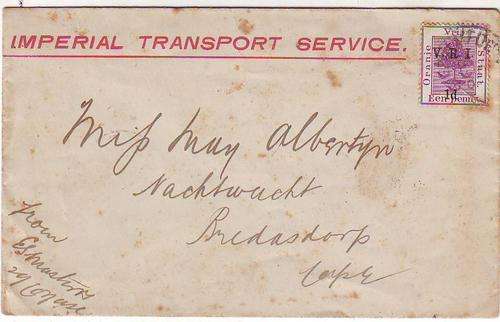 IMPERIAL TRANSPORT SERVICE.
Oranje Vrij Staat.
V.R.I
1d
Een penny
Miss May Albertyn
Nachtwacht
Bredasdorp
Cape
from